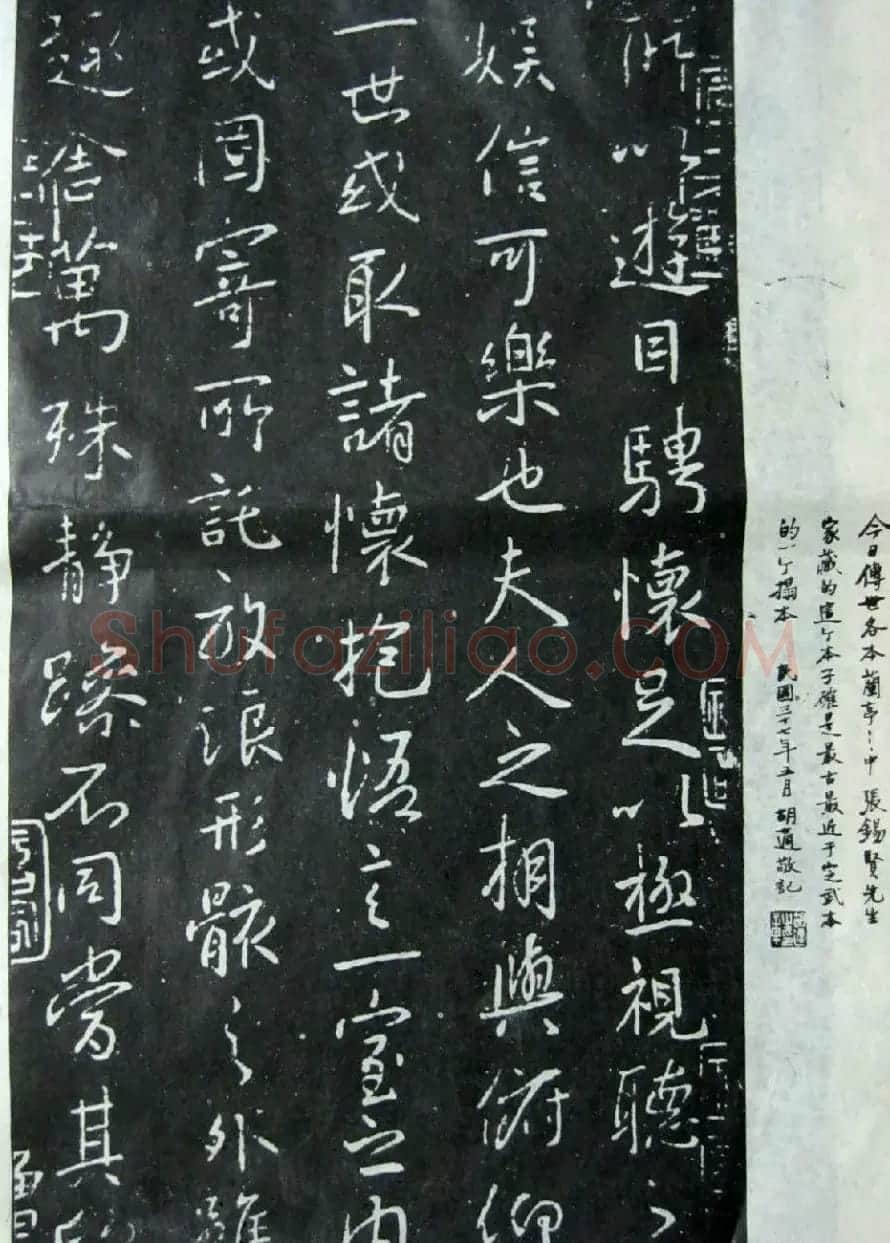 今日傳世各本蘭亭之中張錫賢先生
家藏的這个本子確是最古最近于定武本
的一个搨本 民國三十七年五月 胡適敬記
所以遊目騁懷足以極視聽之
娛信可樂也夫人之相與俯仰
一世或取諸懷抱悟言一室之內
或因寄所託放浪形骸之外雖
趣舍萬殊靜躁不同當其
Shufaziliao.COM